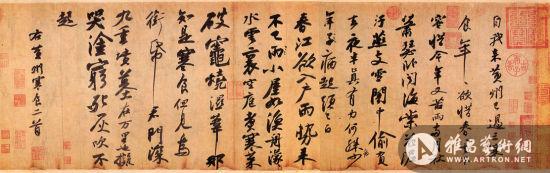 自我來黃州已過三寒
食年年欲惜春春去不
容惜今年又苦雨兩月秋
蕭瑟臥聞海棠花泥
汙燕支雪闇中偷負
去夜半真有力何殊病少
年子病起頭已白
春江欲入戶雨勢來
不已雨小屋如漁舟濛濛
水雲裏空庖煮寒菜
破竈燒濕葦那
知是寒食但見烏
銜帋君門深
九重墳墓在萬里也擬
哭塗窮死灰吹不
起
右黃州寒食二首
雅昌藝術網
WWW.ARTRON.NET